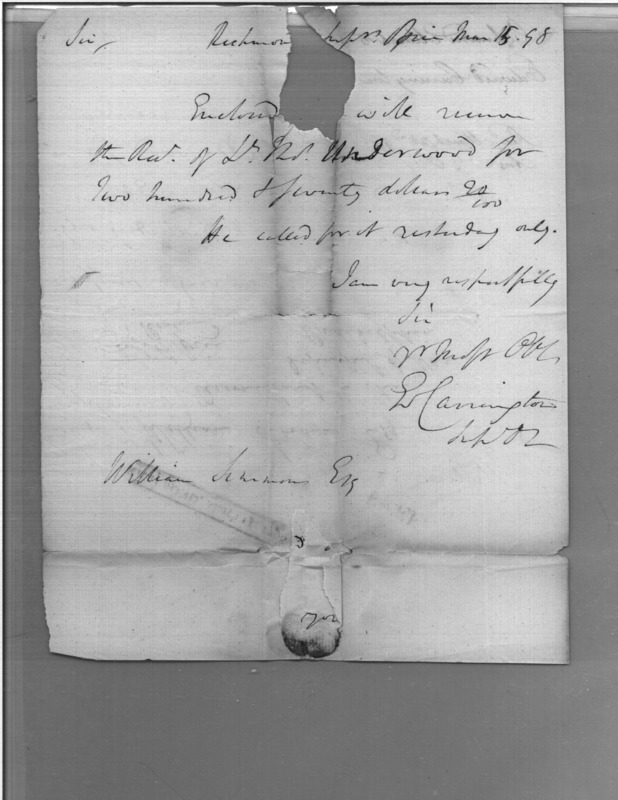 Sir Richmon Suprs. Office Mar 15. 98
Enclosed will
the Rect. of Lt. Thos. Underwood for
Two hundred & seventy dollars 20/100
He called for it yesterday only.
I am very respectfully
Sir
yr Most Obt
Ed Carrington
William Simmons Esq
you